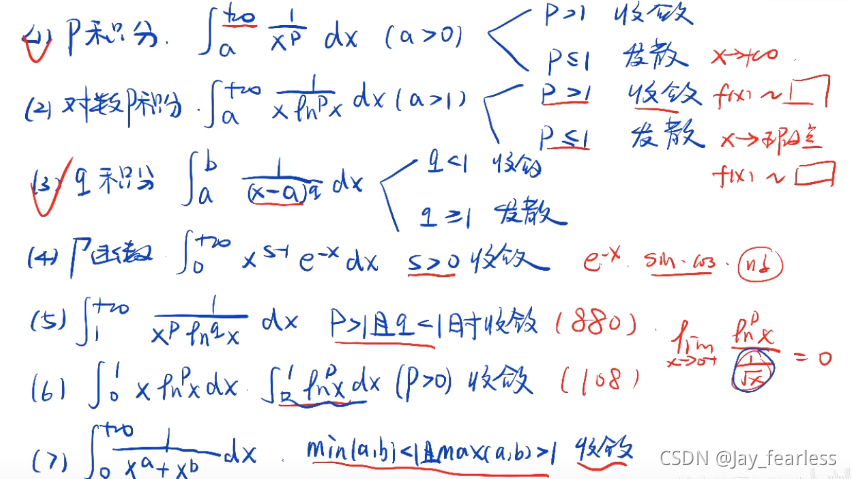 (1) P积分. ∫_a^{+∞} 1/x^p dx (a>0) P>1 收敛
P≤1 发散 x→+∞.
(2) 对数P积分. ∫_a^{+∞} 1/(x ln^p x) dx (a>1) P>1 收敛 f(x) ~ □
P≤1 发散 x→瑕点
f(x) ~ □
(3) q积分 ∫_a^b 1/(x-a)^q dx q<1 收敛
q≥1 发散
(4) Γ函数 ∫_0^{+∞} x^{s-1} e^{-x} dx s>0 收敛 e^{-x}. sin. cos.
(5) ∫_1^{+∞} 1/(x^p ln^q x) dx P>1且q<1时收敛 (880). lim_{x→0+} ln^p x/(1/√x) = 0
(6) ∫_0^1 x ln^p x dx ∫_0^1 ln^p x dx (P>0) 收敛 (108)
(7) ∫_0^{+∞} 1/(x^a+x^b) dx. min(a,b)<1且max(a,b)>1 收敛
CSDN @Jay_fearless